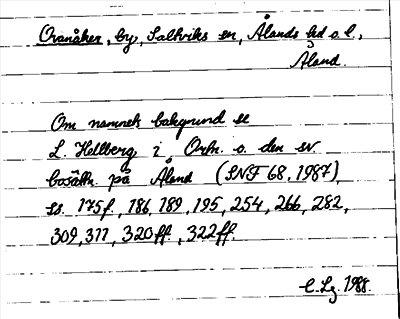 Ovanåker, by, Saltviks sn, Ålands hd o. l.,
Åland.
Om namnets bakgrund se
L. Hellberg i Ortn. o. den sv
bosättn. på Åland (SNF 68, 1987),
ss. 175f., 186, 189, 195, 254, 266, 282,
309, 311, 320ff., 322ff.
C. Lg. 1988.